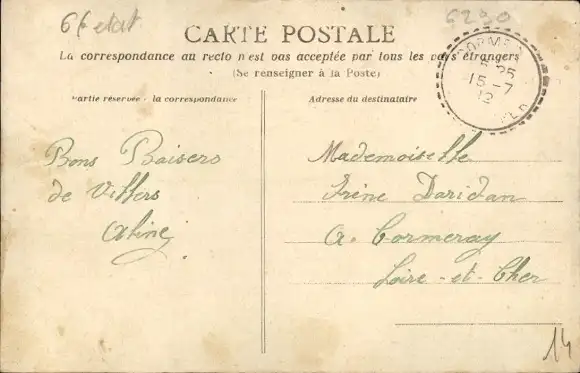 6f etat
6290
CARTE POSTALE
La correspondance au recto n'est pas acceptée par tous les pays étrangers
(Se renseigner à la Poste)
Partie réservée à la correspondance
Adresse du destinataire
15 -7
12
Bons Baisers
de Villers
Aline
Mademoiselle
Irène Daridan
à Cormeray
Loir-et-Cher
14